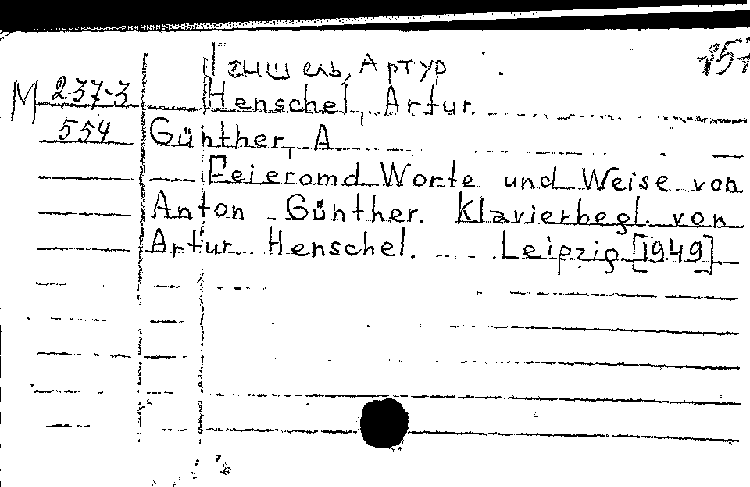 Гэншель, Артур 157
M 237-3 Henschel, Artur.
554 Günther, A
Feieromd Worte und Weise von
Anton Günther. Klavierbegl. von
Artur Henschel. Leipzig [1949]